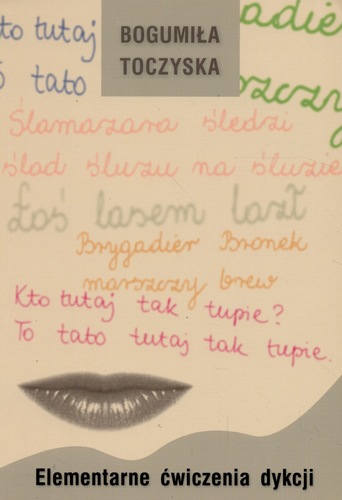 to tutaj
BOGUMIŁA
adie
tato
TOCZYSKA
szczy
Ślamazara śledzi
ślad śluzu na śluzie
Łoś lasem lazł
Brygadier Bronek
marszczy brew
Kto tutaj tak tupie?
To tato tutaj tak tupie.
Elementarne ćwiczenia dykcji